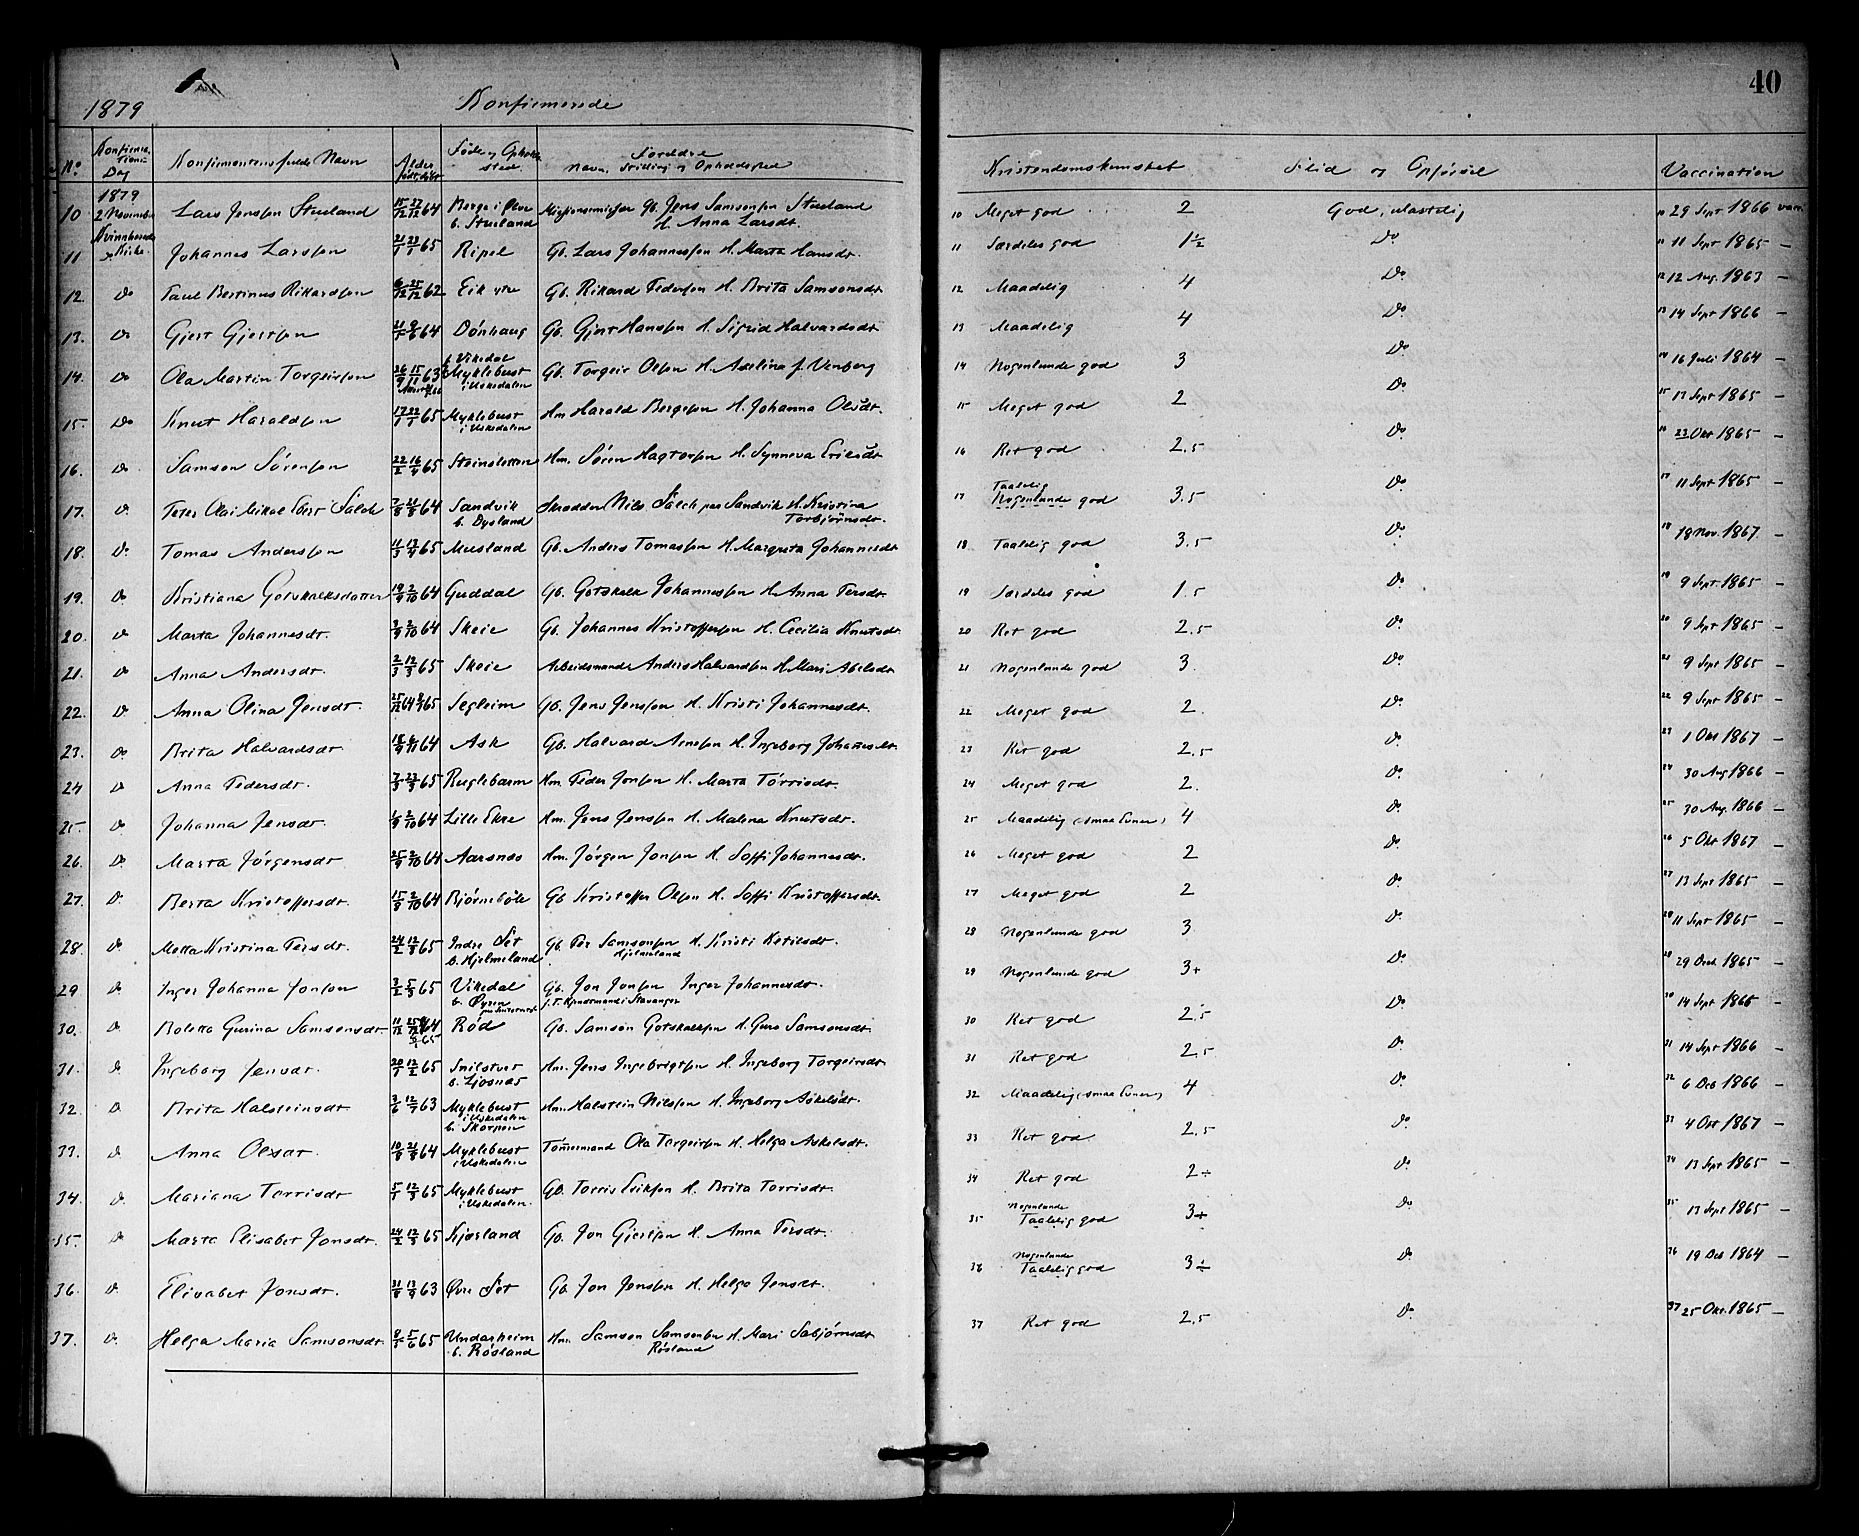 40
1879 Konfirmerede
No. Konfirmations Dag Konfirmantens fulde Navn Alder født, døbt Føde og Opholdssted Forældre Navn, Stilling og Opholdssted Kristendomskundskab Flid og Opførsel Vaccination
1879
10 2 November Lars Jenssen Stueland 64 Berge i Ølve b. Stueland Gb. Jens Samsonsen Stueland H. Anna Larsdt. 10 Meget god 2 God, ulastelig 29 Sept 1866 vacc.
Kvinnherred Kirke
11 Johannes Larssen 65 Ripel Gb. Lars Johannessen H. Marta Hansdt. 11 Særdeles god 1½ Do 11 Sept 1865 —
12 Do Paul Bertinus Rikardsen 62 Eik ytre Gb. Rikard Pedersen H. Brita Samsonsdt 12 Maadelig 4 Do 12 Aug. 1863 —
13. Do Gjert Gjertsen 64 Dónhaug Gb. Gjert Hanssen H. Sigrid Halvardsdt 13 Maadelig 4 Do 14 Sept 1866 —
14. Do Ola Martin Torgeirsen 63 f. Vikedal b. Myklebust i Uskedalen Gb. Torgeir Olsen H. Axelina f. Venberg 14 Nogenlunde god 3 Do 16 Juli 1864 —
15. Do Knut Haraldsen 65 Myklebust i Uskedalen Hm Harald Bergesen H. Johanna Olsdt. 15 Meget god 2 Do 13 Sept 1865 —
16. Do Samson Sørensen 65 Steinsletten Hm. Søren Hagtorsen H. Synneva Eriksdt 16 Ret god 2.5 Do 23 Okt 1865 —
17. Do Peter Olai Mikal Ebert Fálch 64 Sandvik b. Dysland Skrædder Nils Fálch paa Sandvik H. Kristina Torbjørnsdt. 17 Taalelig Nogenlunde god 3.5 Do 11 Sept 1865 —
18. Do Tomas Anderssen 65 Musland Gb. Anders Tomassen H. Margreta Johannesdt 18 Taalelig god 3.5 Do 18 Nov. 1867 —
19. Do Kristiana Gotskalksdatter 64 Guddal Gb. Gotskalk Johannessen H. Anna Persdt 19 Særdeles god 1.5 Do 9 Sept 1865 —
20. Do Marta Johannesdt. 64 Skeie Gb. Johannes Kristoffersen H. Cecilia Knutsdt. 20 Ret god 2.5 Do 9 Sept 1865 —
21. Do Anna Andersdt. 65 Skeie Arbeidsmand Anders Halvardsen H. Mari Abelsdt 21 Nogenlunde god 3. Do 9 Sept 1865 —
22. Do Anna Olina Jensdt. 64 65 Segleim Gb. Jens Jenssen H. Kristi Johannesdt. 22 Meget god 2. Do 9 Sept 1865 —
23. Do Brita Halvardsdt. 64 Ask Gb. Halvard Arnesen H. Ingeborg Johannesdt. 23 Ret god 2.5 Do 1 Okt 1867 —
24 Do Anna Pedersdt. 65 Ruglebarm Hm Peder Jonsen H. Marta Tórrisdt. 24 Meget god 2. Do 30 Aug 1866 —
25 Do Johanna Jensdt. 64 Lille Ekre Hm. Jens Jenssen H. Malena Knutsdt. 25 Maadelig (smaa Evner) 4 Do 30 Aug. 1866 —
26. Do Marta Jórgensdt 64 Aarsnes Hm. Jórgen Jonsen H. Soffi Johannesdt. 26 Meget god 2 Do 5 Okt 1867 —
27. Do Berta Kristoffersdt. 64 Bjørnebóle Gb Kristoffer Olsen H. Soffi Kristoffersdt. 27 Meget god 2 Do 13 Sept 1865 —
28. Do Metta Kristina Persdt. 65 Indre Set b. Hjelmeland Gb. Per Samsonsen H. Kristi Ketilsdt. Hjelmeland 28 Nogenlunde god 3 Do 11 Sept 1865 —
29 Do Inger Johanna Jonsen 65 Vikedal b. Øyren Gb. Jon Jonsen Inger Johannesdt. f. t. Kjøbmand i Stavanger 29 Nogenlunde god 3+ Do 29 1865 —
30. Do Boletta Gurina Samsonsdt. 64 65 Rød Gb. Samson Gotskalksen H. Guro Samsonsdt 30 Ret god 2.5 Do 14 Sept 1866 —
31. Do Ingeborg Jensdt. 65 Snilstveit b. Ljosnes Hm. Jens Ingebrigtsen H. Ingeborg Torgeirsdt. 31 Ret god 2.5 Do 14 Sept 1866 —
32. Do Brita Halsteinsdt 63 Myklebust i Uskedalen b. Skorpen Hm. Halstein Nilssen H. Ingeborg Askelsdt. 32 Maadelig (smaa Evner) 4 Do 6 Dcb 1866 —
33. Do Anna Olsdt. 64 Myklebust i Uskedalen Tómermand Ola Torgeirsen H. Helga Askelsdt. 33 Ret god 2.5 Do 4 Okt 1867 —
34. Do Mariana Torrisdt 65 Myklebust i Uskedalen. Gb. Torris Eriksen H. Brita Torrisdt. 34 Ret god 2÷ Do 13 Sept 1865 —
35. Do Marta Elisabet Jonsdt. 65 Kjærland Gb. Jon Gjertsen H. Anna Persdt. 35 Nogenlunde Taalelig god 3+ Do 13 Sept 1865 —
36. Do Elisabet Jonsdt. 63 Øvre Set Gb Jon Jenssen H. Helga Jensdt. 36 Nogenlunde Taalelig god 3÷ Do 19 Dcb 1864 —
37. Do Helga Maria Samsonsdt. 65 Undarheim b. Røsland Hm. Samson Samsonsen H. Mari Sabjórnsdt Røsland 37 Ret god 2,5 Do 25 Okt. 1865 —